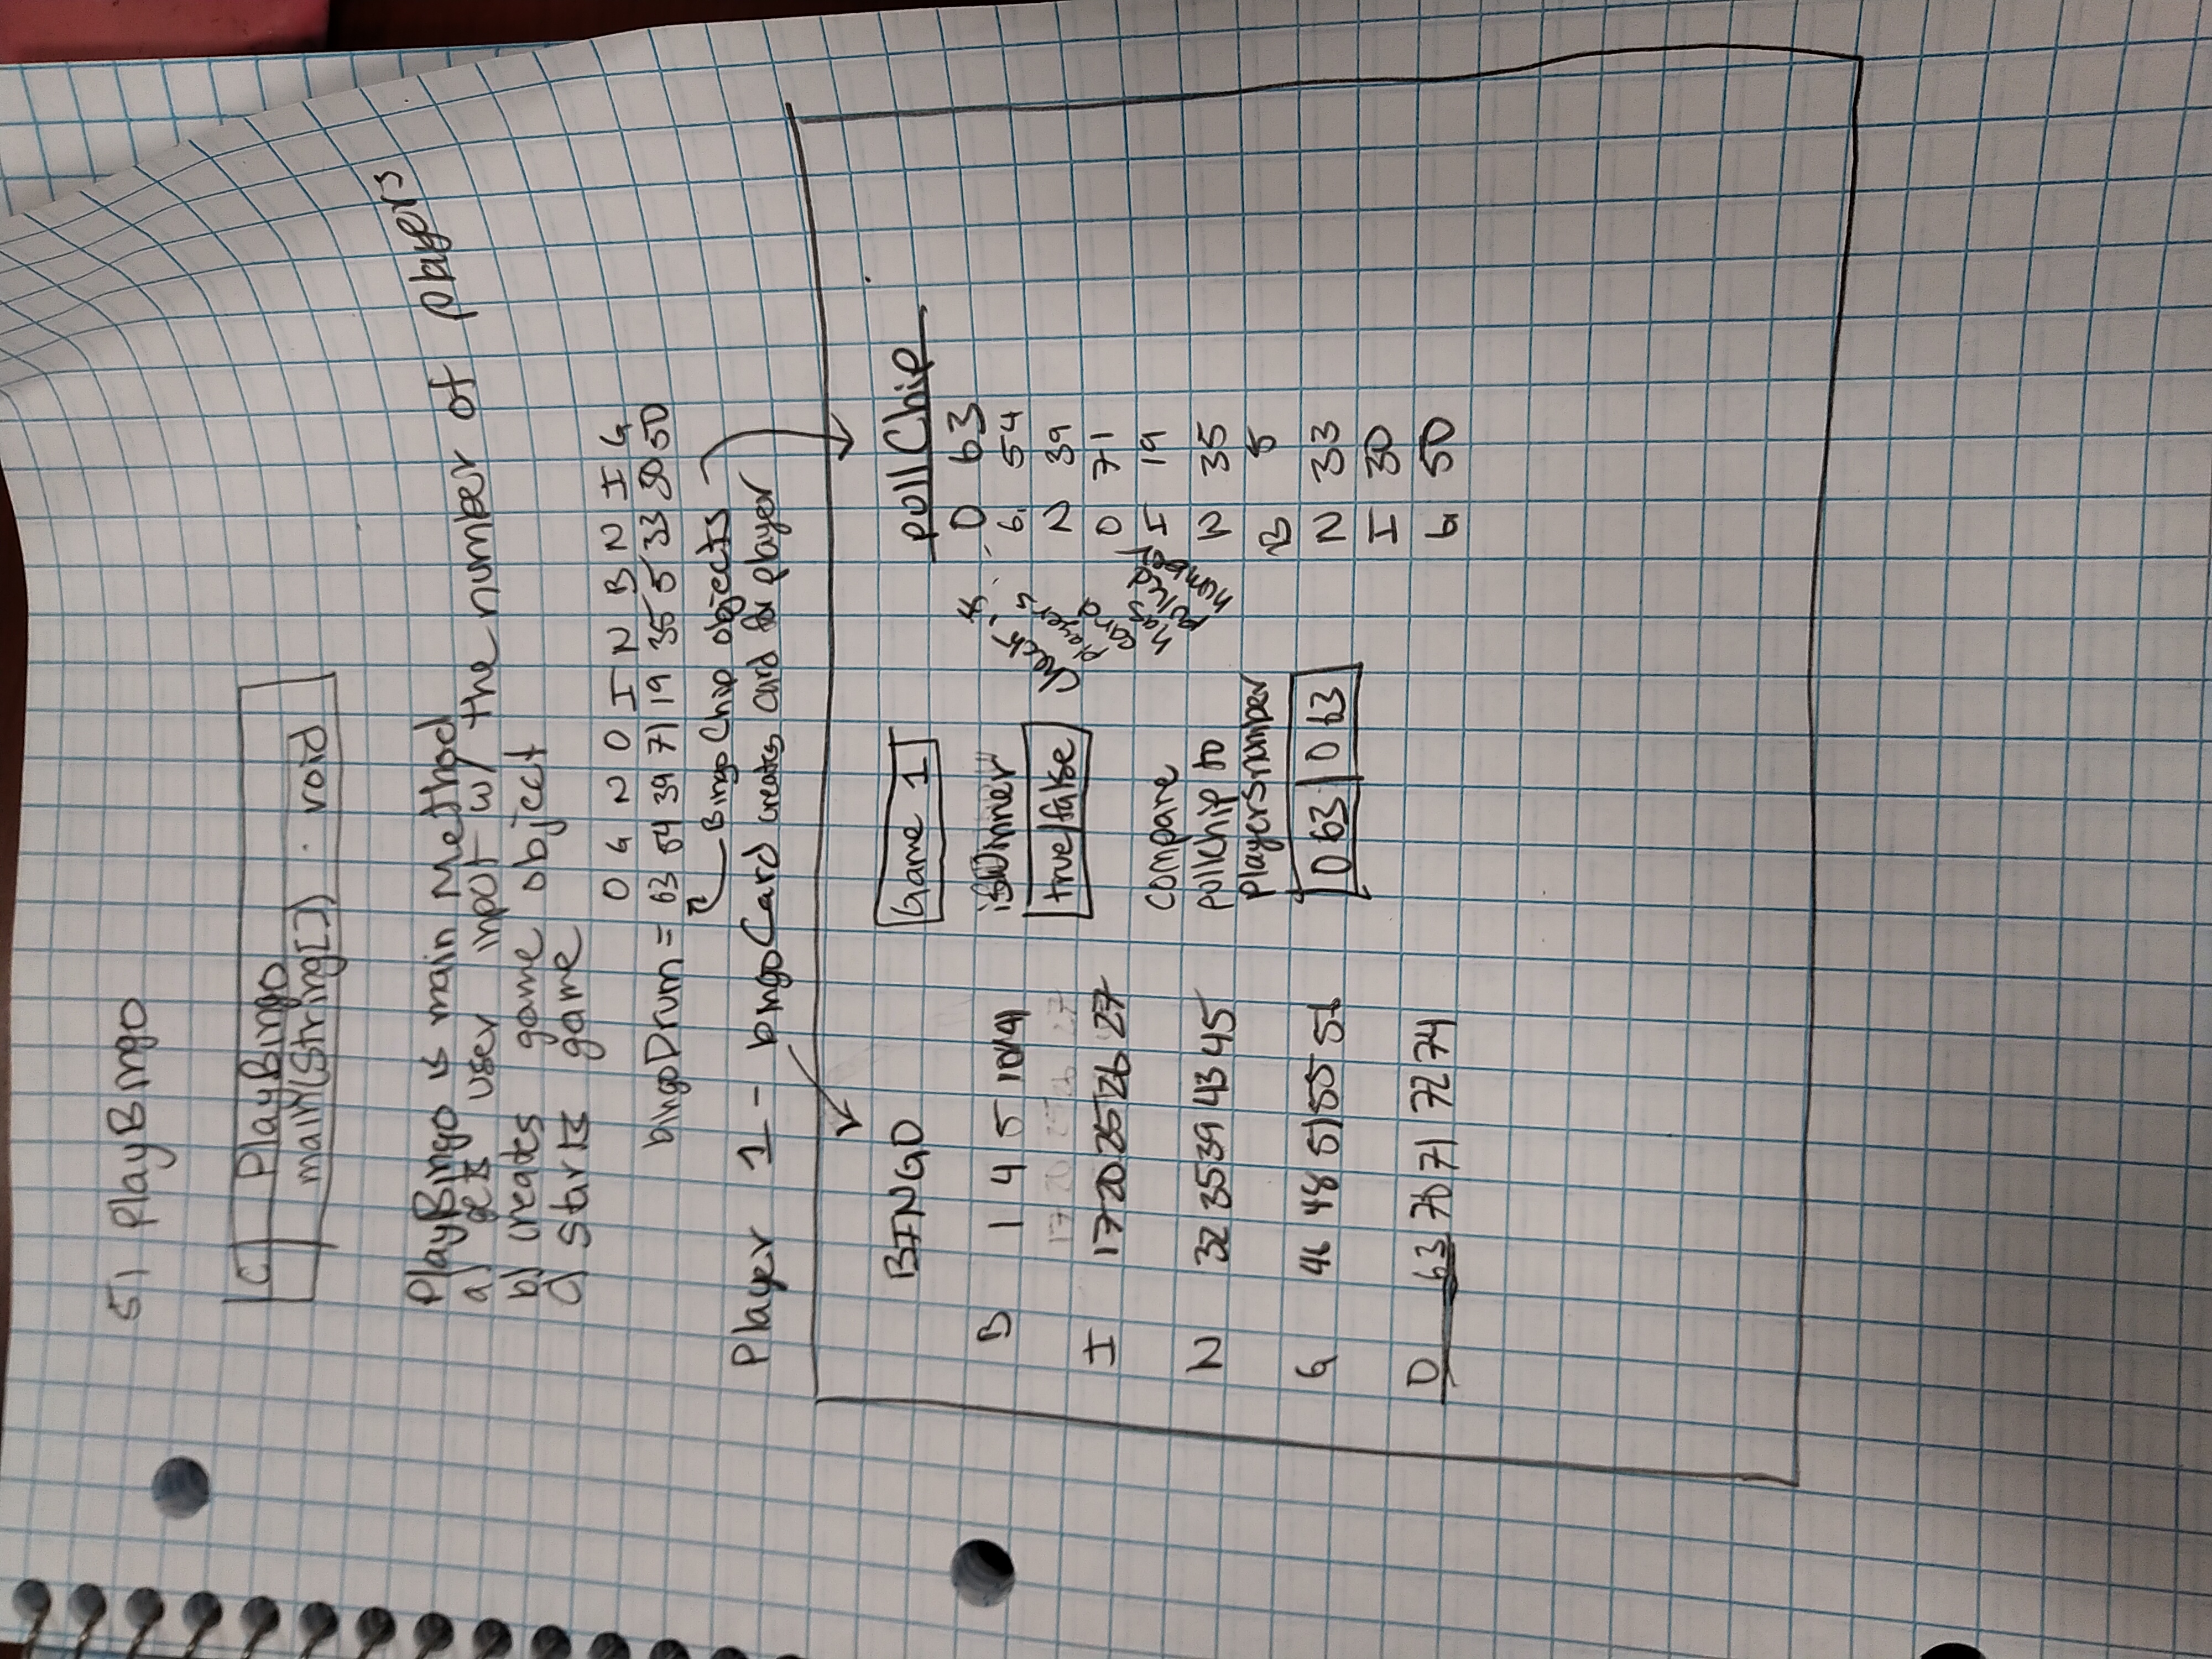 5) PlayBingo
C PlayBingo
main(String[]) : void
PlayBingo is main Method
a) gets user input w/ the number of players
b) creates game object
c) starts game
O G N O I N B N I G
bingoDrum = 63 54 39 71 19 35 5 33 30 50
BingoChip objects
Player 1 - bingoCard creates card for player
BINGO
B 1 4 5 10 14
17 20 25 26 27
I 17 20 25 26 27
N 32 35 39 43 45
G 46 48 51 55 56
O 63 70 71 72 74
Game 1
isWinner
true/false
compare
pullchip to
playersnumber
O 63 | O 63
check is
players
card
has
pulled
number
pullChip
O 63
G 54
N 39
O 71
I 19
N 35
B 5
N 33
I 30
G 50